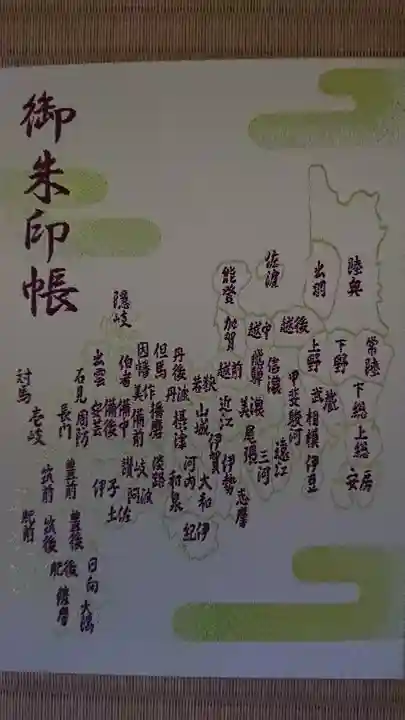 御朱印帳
陸奥
出羽
佐渡
能登
加賀
越中
越後
上野
下野
常陸
下総
上総
安房
武蔵
相模
伊豆
甲斐
駿河
信濃
遠江
飛騨
美濃
三河
尾張
越前
近江
伊賀
伊勢
志摩
若狭
山城
大和
紀伊
丹後
丹波
摂津
河内
和泉
但馬
播磨
淡路
因幡
美作
備前
伯耆
備中
備後
隠岐
出雲
安芸
石見
周防
長門
讃岐
阿波
伊予
土佐
対馬
壱岐
筑前
筑後
豊前
豊後
肥前
肥後
日向
大隅
薩摩